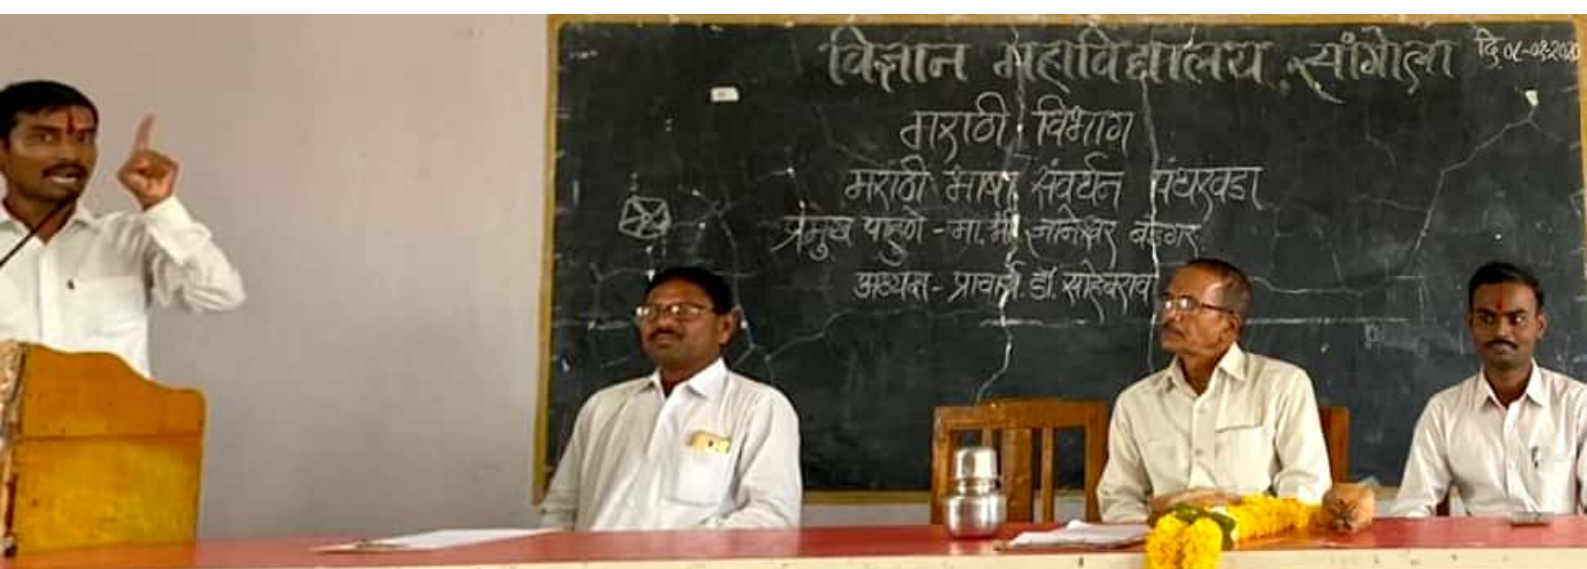 विज्ञान महाविद्यालय सांगोला
मराठी विभाग
मराठी भाषा संवर्धन पंधरवडा
प्रमुख पाहुणे - मा. श्री ज्ञानेश्वर बंडगर
अध्यक्ष - प्राचार्य. डॉ. साहेबराव